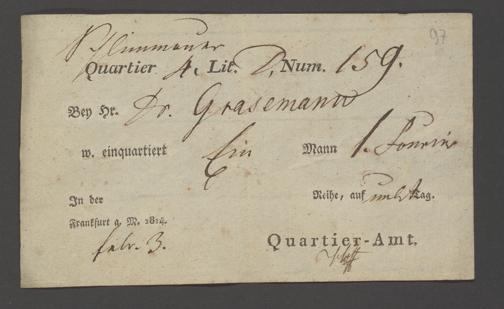 97
Quartier 4. Lit. D, Num. 159.
Bey Hr. Dr. Grasemann
w. einquartiert Ein Mann 1.
In der Reihe, auf unbst Tag.
Frankfurt a. M. 1814.
febr. 3.
Quartier-Amt.